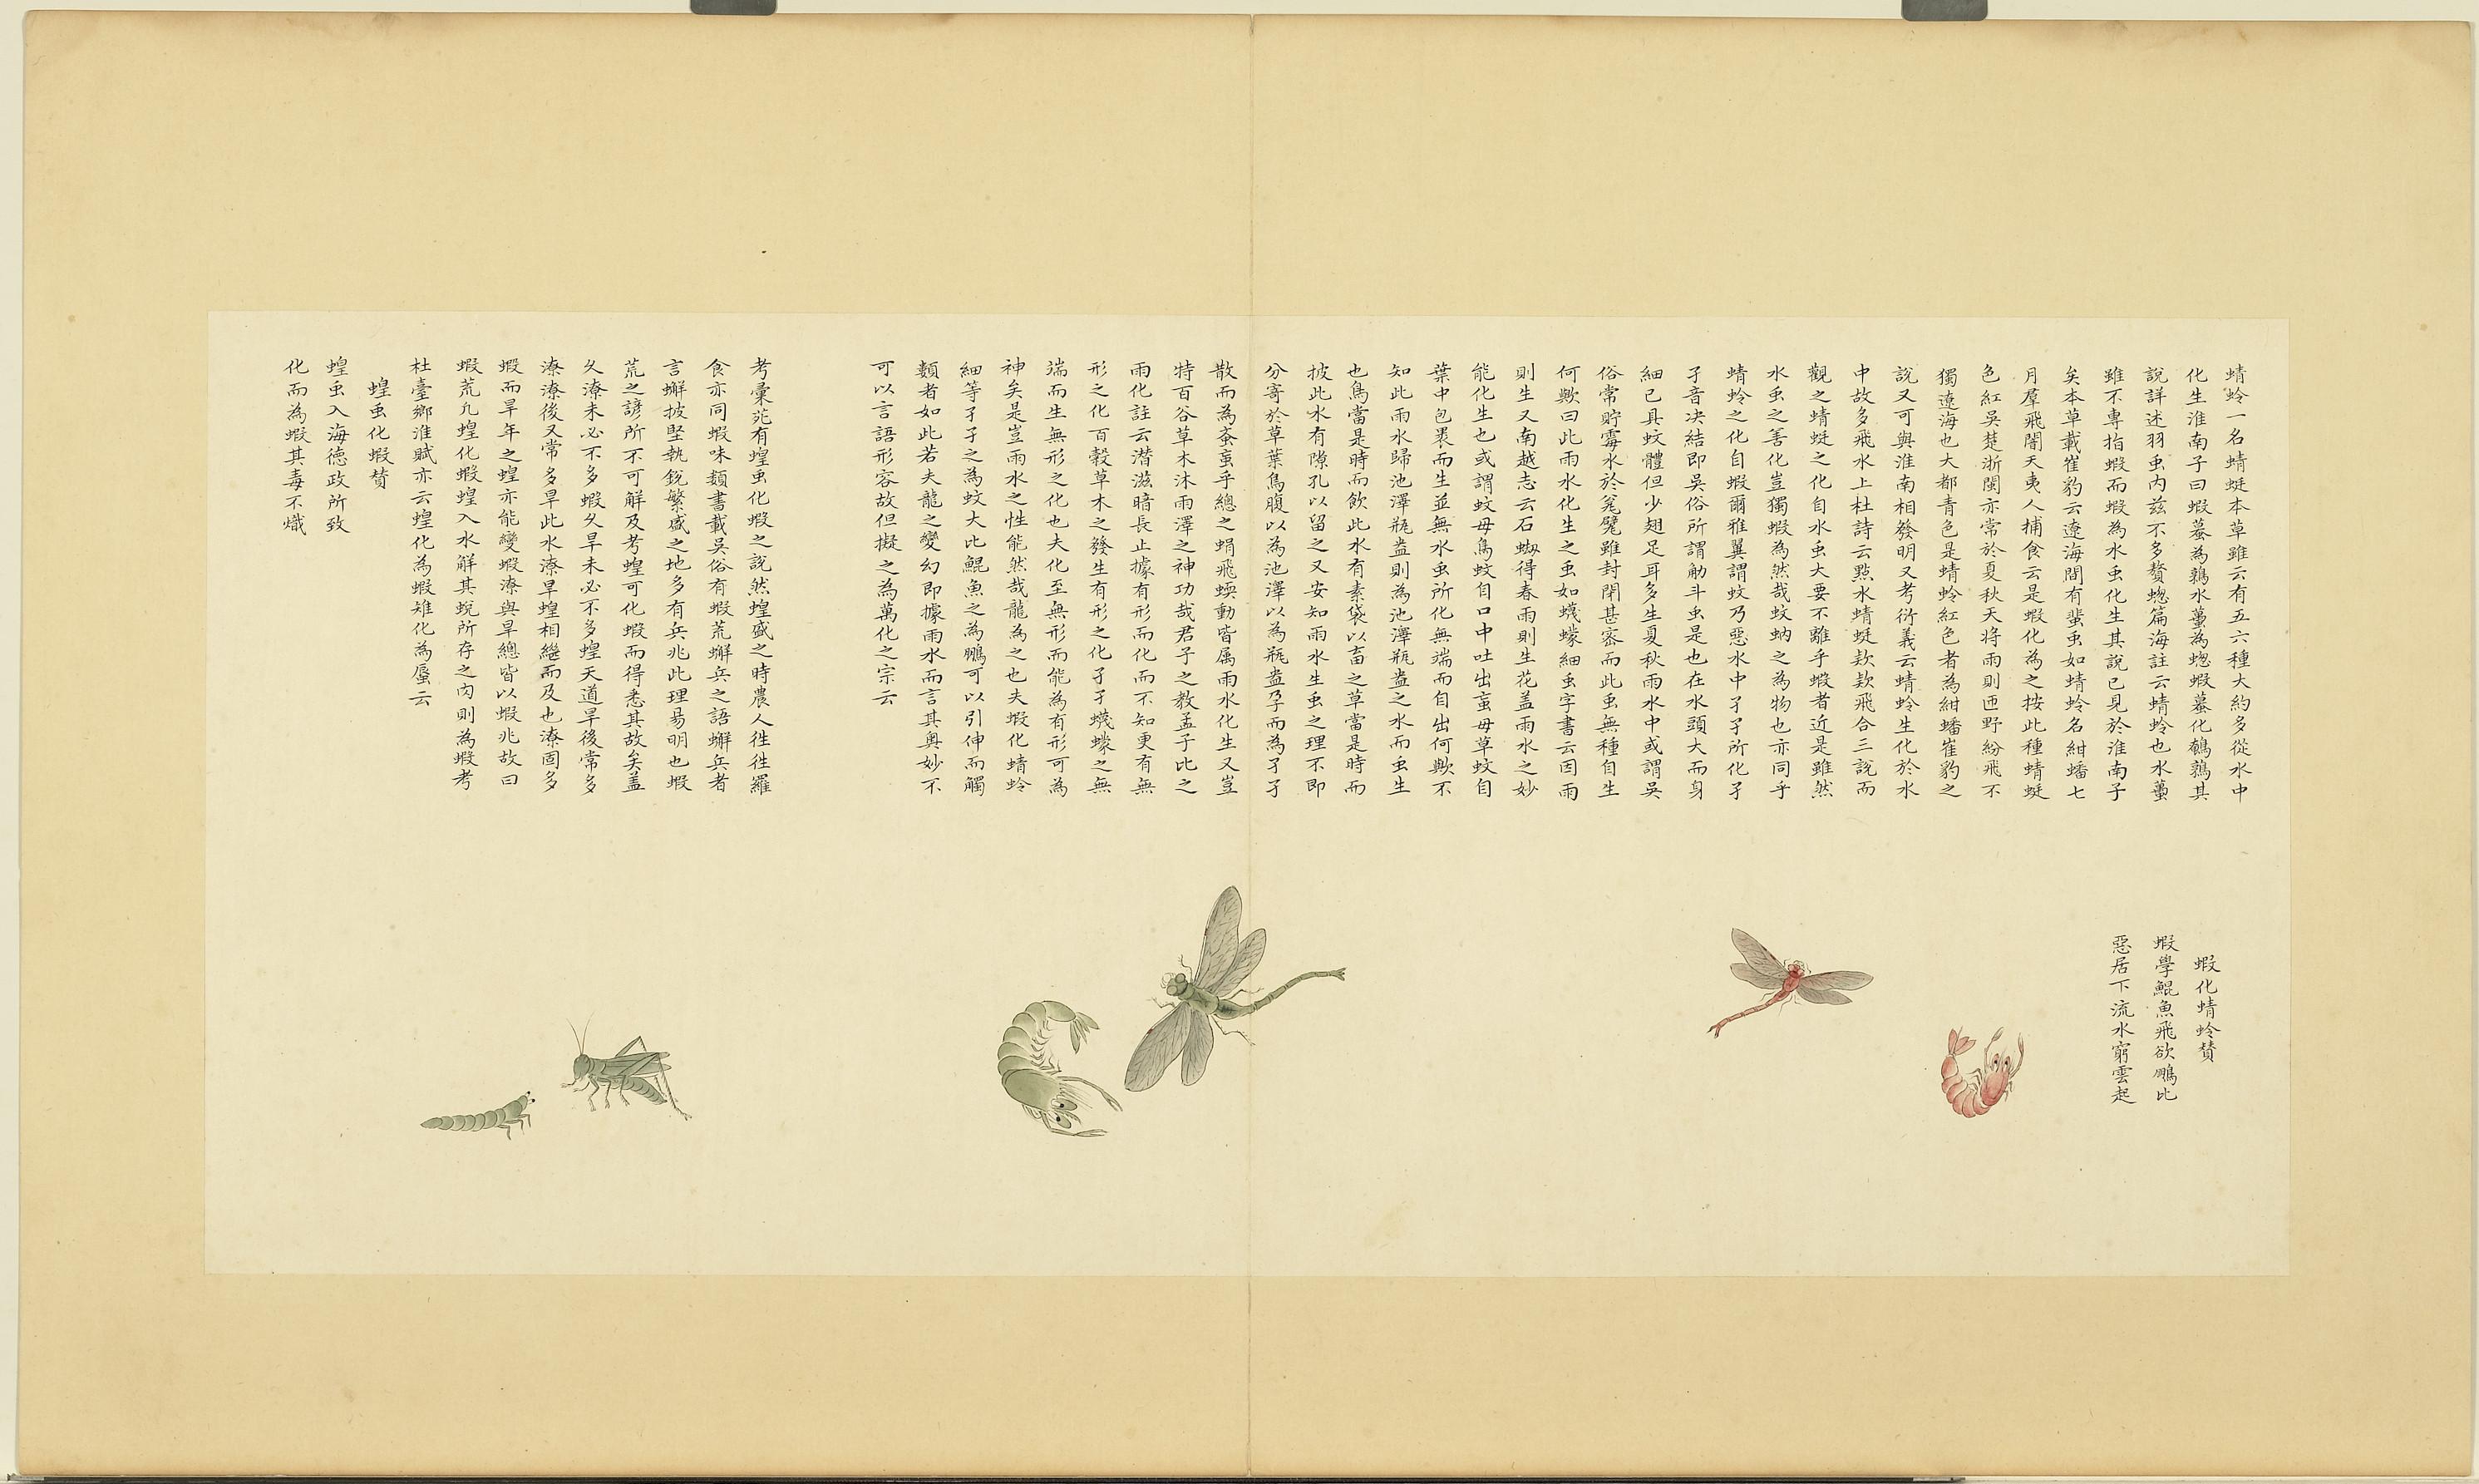 蜻蛉一名蜻蜓本草雖云有五六種大約多從水中
化生淮南子曰蝦蟇為鶉水蠆為蟌蝦蟇化鵪鶉其
說詳述羽虫內茲不多贅蟌篇海註云蜻蛉也水蠆
雖不專指蝦而蝦為水虫化生其說已見於淮南子
矣本草載崔豹云遼海間有蜚虫如蜻蛉名紺蟠七
月羣飛闇天夷人捕食云是蝦化為之按此種蜻蜓
色紅吳楚浙閩亦常於夏秋天將雨則匝野紛飛不
獨遼海也大都青色是蜻蛉紅色者為紺蟠崔豹之
說又可與淮南相發明又考衍義云蜻蛉生化於水
中故多飛水上杜詩云點水蜻蜓款款飛合三說而
觀之蜻蜓之化自水虫大要不離乎蝦者近是雖然
水虫之善化豈獨蝦為然哉蚊蚋之為物也亦同乎
蜻蛉之化自蝦爾雅翼謂蚊乃惡水中孑孑所化孑
孑音决結即吳俗所謂觔斗虫是也在水頭大而身
細已具蚊體但少翅足耳多生夏秋雨水中或謂吳
俗常貯霉水於瓮甕雖封閉甚密而此虫無種自生
何歟曰此雨水化生之虫如蠛蠓細虫字書云因雨
則生又南越志云石蜐得春雨則生花盖雨水之妙
能化生也或謂蚊母鳥蚊自口中吐出䖟母草蚊自
葉中包裹而生並無水虫所化無端而自出何歟不
知此雨水歸池澤瓶盎則為池澤瓶盎之水而虫生
也鳥當是時而飲此水有素袋以畜之草當是時而
披此水有隙孔以留之又安知雨水生虫之理不即
分寄於草葉鳥腹以為池澤以為瓶盎孕而為孑孑
散而為蚉䖟乎總之蜎飛蝡動皆属雨水化生又豈
特百谷草木沐雨澤之神功哉君子之教孟子比之
雨化註云潛滋暗長止據有形而化而不知更有無
形之化百穀草木之發生有形之化孑孑蠛蠓之無
端而生無形之化也夫化至無形而能為有形可為
神矣是豈雨水之性能然哉龍為之也夫蝦化蜻蛉
細等孑孑之為蚊大比鯤魚之為鵬可以引伸而觸
類者如此若夫龍之變幻即據雨水而言其奧妙不
可以言語形容故但擬之為萬化之宗云
蝦化蜻蛉賛
蝦學鯤魚飛欲鵬比
惡居下流水窮雲起
考彙苑有蝗虫化蝦之說然蝗盛之時農人徃徃羅
食亦同蝦味類書載吳俗有蝦荒蠏兵之語蠏兵者
言蠏披堅執銳繁盛之地多有兵兆此理易明也蝦
荒之諺所不可解及考蝗可化蝦而得悉其故矣盖
久潦未必不多蝦久旱未必不多蝗天道旱後常多
潦潦後又常多旱此水潦旱蝗相繼而及也潦固多
蝦而旱年之蝗亦能變蝦潦與旱總皆以蝦兆故曰
蝦荒凢蝗化蝦蝗入水解其蛻所存之肉則為蝦考
杜臺卿淮賦亦云蝗化為蝦雉化為蜃云
蝗虫化蝦賛
蝗虫入海德政所致
化而為蝦其毒不熾